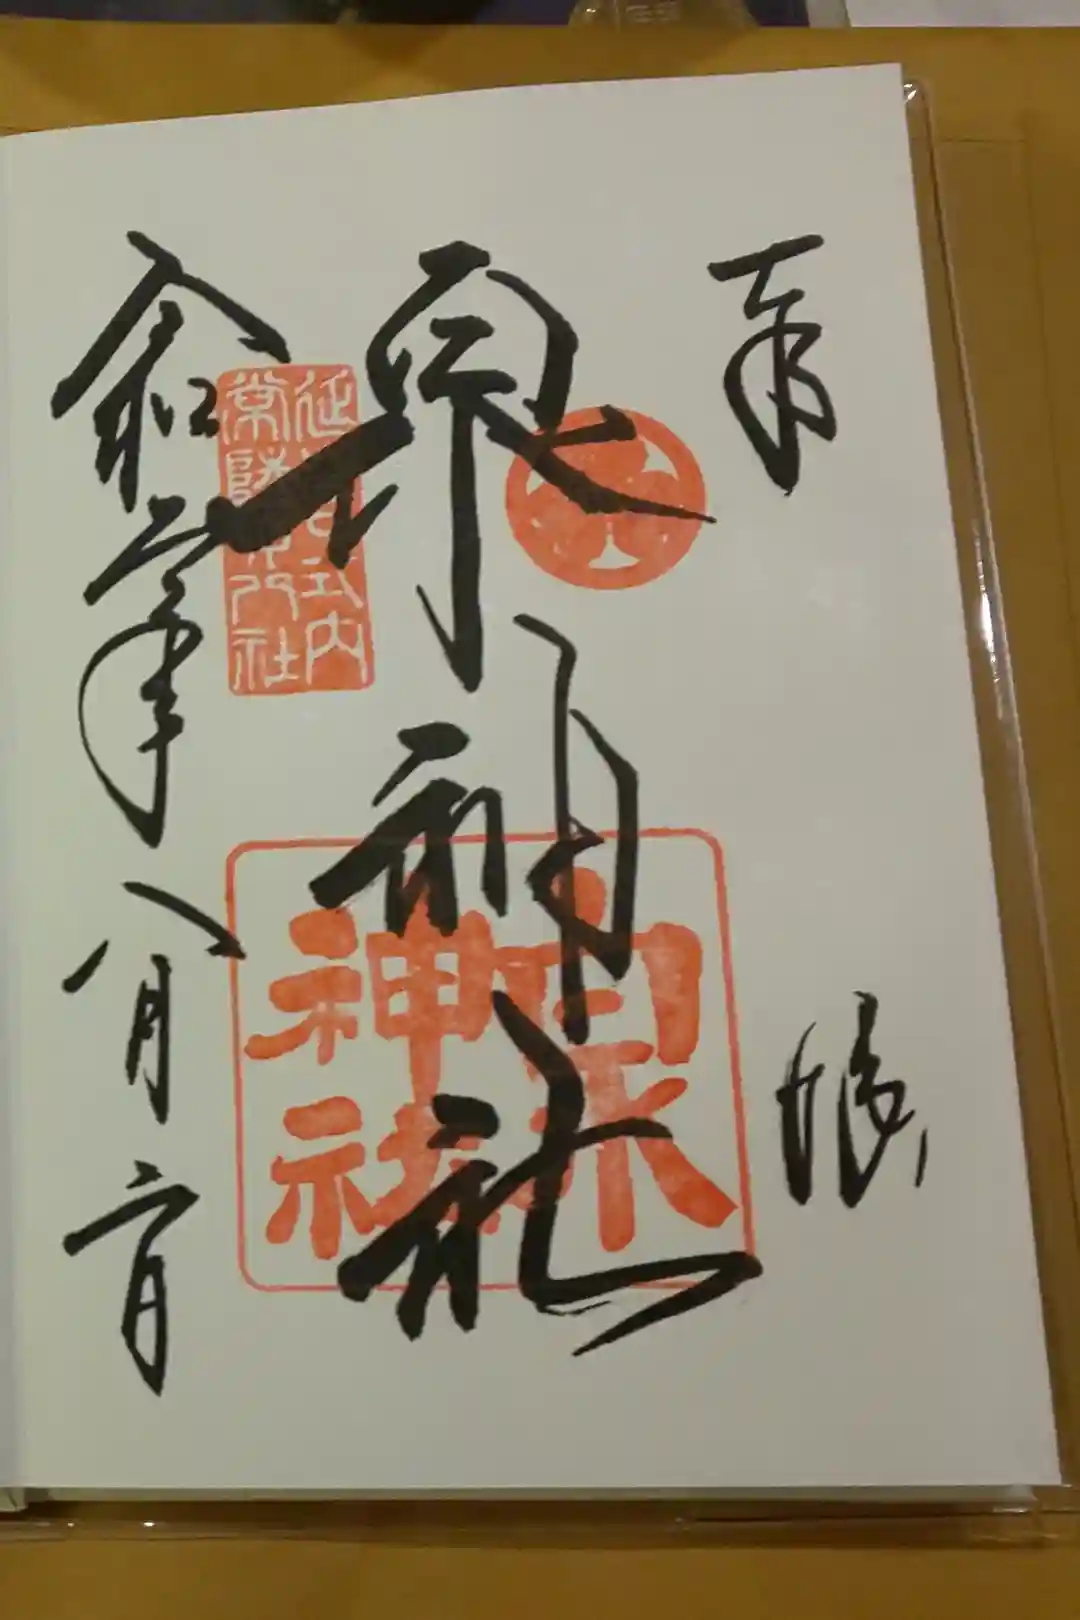 奉拝
泉神社
泉神社
延喜式内
常陸廿八社
令和二年八月二日